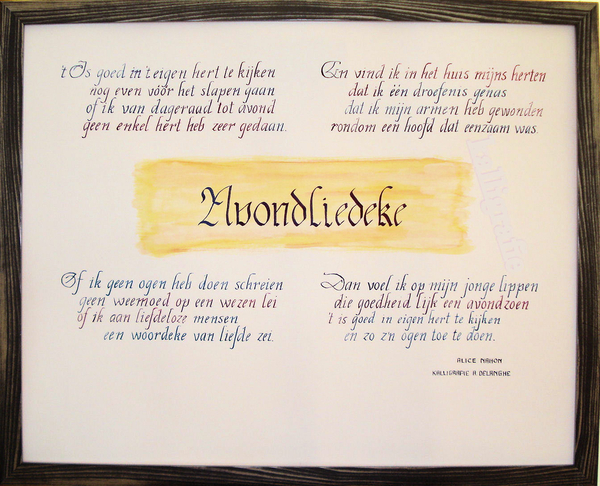 't Is goed in 't eigen hert te kijken
nog even vóór het slapen gaan
of ik van dageraad tot avond
geen enkel hert heb zeer gedaan.
Of ik geen ogen heb doen schreien
geen weemoed op een wezen lei
of ik aan liefdeloze mensen
een woordeke van liefde zei.
Avondliedeke
En vind ik in het huis mijns herten
dat ik één droefenis genas
dat ik mijn armen heb gewonden
rondom een hoofd dat eenzaam was.
Dan voel ik op mijn jonge lippen
die goedheid lijk een avondzoen
't is goed in eigen hert te kijken
en zo z'n ogen toe te doen.
ALICE NAHON
KALLIGRAFIE A. DELANGHE